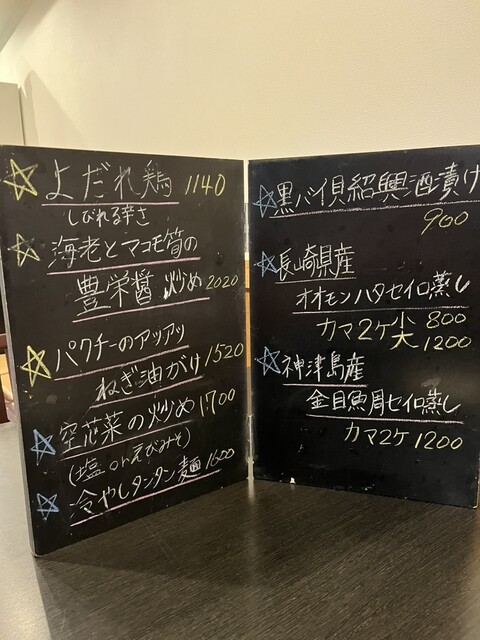 よだれ鶏 1140
しびれる辛さ
海老とマコモ筍の
豊栄醤炒め 2020
パクチーのアツアツ
ねぎ油がけ 1520
空芯菜の炒め 1700
(塩 or えびみそ)
冷やしタンタン麺 1600
黒バイ貝紹興酒漬け
900
長崎県産
オオモンハタセイロ蒸し
カマ2ケ 800
1200
神津島産
金目魚周セイロ蒸し
カマ2ケ 1200